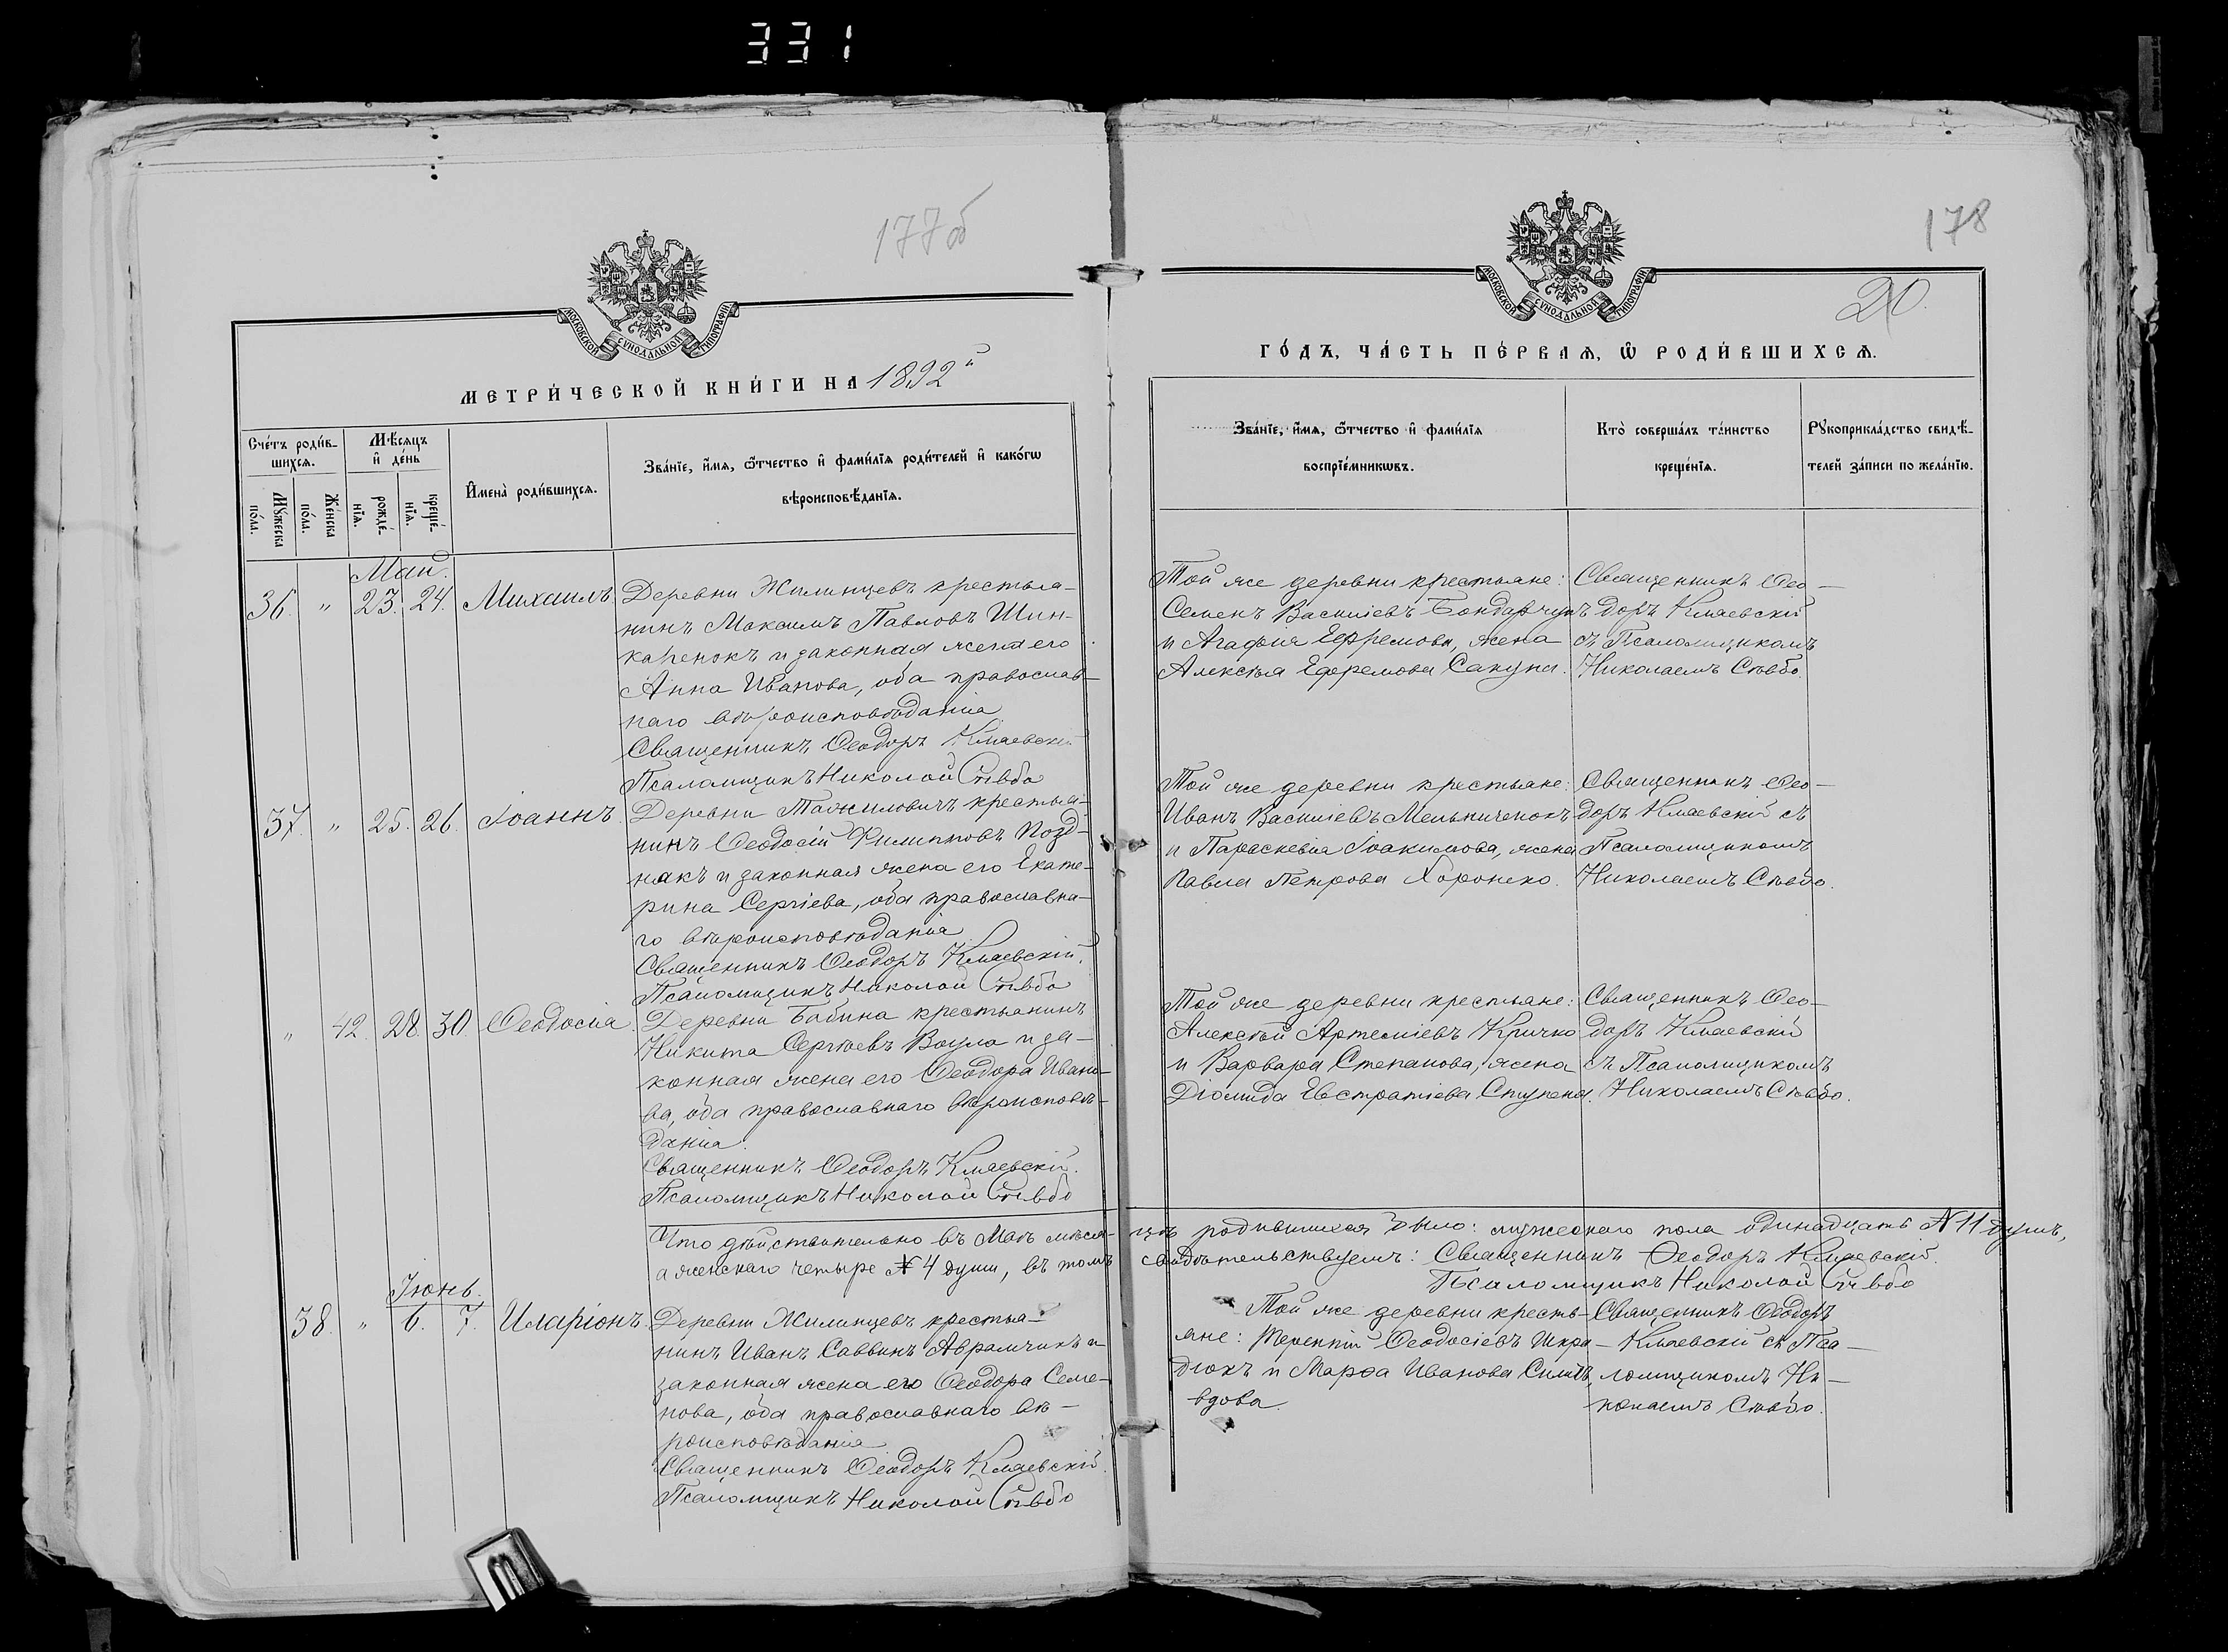 331
177об
178
20.
МОСКОВСКОЙ СѴНОДАЛЬНОЙ ТИПОГРАФІИ
МОСКОВСКОЙ СѴНОДАЛЬНОЙ ТИПОГРАФІИ
МЕТРИ́ЧЕСКОЙ КНИ́ГИ НА 1892й
ГО́ДЪ, ЧА́СТЬ ПЕ́РВАѦ, Ѡ РОДИ́ВШИХСѦ.
Сче́тъ роди́в-
шихсѧ.
Мꙋ́жеска
по́ла.
Же́нска
по́ла.
Мѣ́сѧцъ
и҆ де́нь
рожде́-
нїѧ.
креще́-
нїѧ.
И҆мена̀ роди́вшихсѧ.
Зва́нїе, и҆́мѧ, ѻ҆́тчество и҆ фами́лїѧ роди́телей и҆ како́гѡ
вѣроисповѣ́данїѧ.
Зва́нїе, и҆́мѧ, ѻ҆́тчество и҆ фами́лїѧ
воспрїе́мникѡвъ.
Кто̀ соверша́лъ та́инство
креще́нїѧ.
Рꙋкоприкла́дство свидѣ́-
телей за́писи по жела́нїю.
Май.
36. " 23. 24. Михаилъ.
Деревни Жилинцевъ крестья-
нинъ Максимъ Павловъ Шин-
каренокъ и законная жена его
Анна Иванова, оба православ-
наго вѣроисповѣданія
Священникъ Ѳеодоръ Кмаевскій
Псаломщикъ Николай Ствбо
Той же деревни крестьяне:
Семенъ Василіевъ Бондарчукъ
и Агафія Ефремова, жена
Алексѣя Ефремова Сакуна.
Священникъ Ѳео-
доръ Кмаевскій
съ Псаломщикомъ
Николаемъ Ствбо.
37. " 25. 26. Іоаннъ.
Деревни Тажиловичъ крестья-
нинъ Ѳеодосій Филипповъ Позд-
някъ и законная жена его Екате-
рина Сергіева, оба православна-
го вѣроисповѣданія
Священникъ Ѳеодоръ Кмаевскій.
Псаломщикъ Николай Ствбо
Той же деревни крестьяне:
Иванъ Василіевъ Мельниченокъ
и Параскевія Іоакимова, жена
Павла Петрова Хоронеко.
Священникъ Ѳео-
доръ Кмаевскій съ
Псаломщикомъ
Николаемъ Ствбо.
" 42. 28. 30. Ѳеодосія.
Деревни Бабина крестьянинъ
Никита Сергѣевъ Воула и за-
конная жена его Ѳеодора Ивано-
ва, оба православнаго вѣроисповѣ-
данія.
Священникъ Ѳеодоръ Кмаевскій.
Псаломщикъ Николай Ствбо
Той же деревни крестьяне:
Алексѣй Артеміевъ Кричко
и Варвара Степанова, жена
Діомида Евстратіева Ступена.
Священникъ Ѳео-
доръ Кмаевскій
съ Псаломщикомъ
Николаемъ Ствбо.
Что дѣйствительно въ Маѣ мѣся- цѣ родившихся было: мужескаго пола одинадцать № 11 душъ,
а женскаго четыре № 4 души, въ томъ свидѣтельствуемъ: Священникъ Ѳеодоръ Кмаевскій.
Псаломщикъ Николай Ствбо
Іюнь.
38. " 6. 7. Иларіонъ.
Деревни Жилинцевъ крестья-
нинъ Иванъ Саввинъ Аврамчикъ и
законная жена его Ѳеодора Семе-
нова, оба православнаго вѣ-
роисповѣданія
Священникъ Ѳеодоръ Кмаевскій.
Псаломщикъ Николай Ствбо
Той же деревни кресть-
яне: Терентій Ѳеодосіевъ Шкра-
дюкъ и Марѳа Иванова Симъ,
вдова.
Священникъ Ѳеодоръ
Кмаевскій съ Пса-
ломщикомъ Ни-
колаемъ Ствбо.